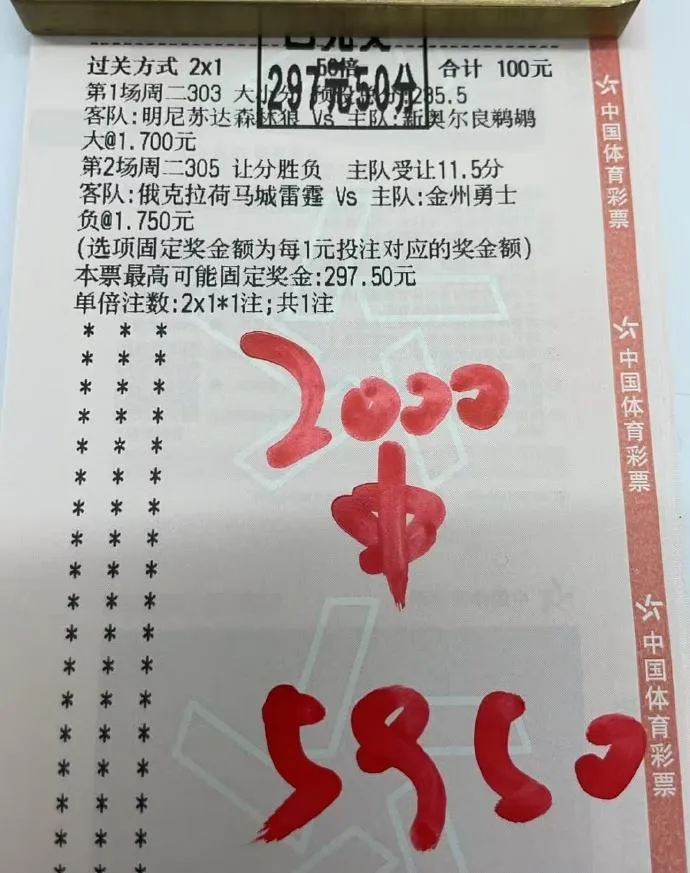 过关方式 2x1 50倍 合计 100元
已兑奖
297元50分
第1场周二303 大小分 预设总分:235.5
客队:明尼苏达森林狼 Vs 主队:新奥尔良鹈鹕
大@1.700元
第2场周二305 让分胜负 主队受让11.5分
客队:俄克拉荷马城雷霆 Vs 主队:金州勇士
负@1.750元
(选项固定奖金额为每1元投注对应的奖金额)
本票最高可能固定奖金:297.50元
单倍注数:2x1*1注;共1注
* * *
* * *
* * *
* * *
* * *
* * *
* * *
* * *
* * *
* * *
* * *
* * *
* * *
* * *
* * *
* * *
* * *
2000
中
5950
中国体育彩票
中国体育彩票
中国体育彩票